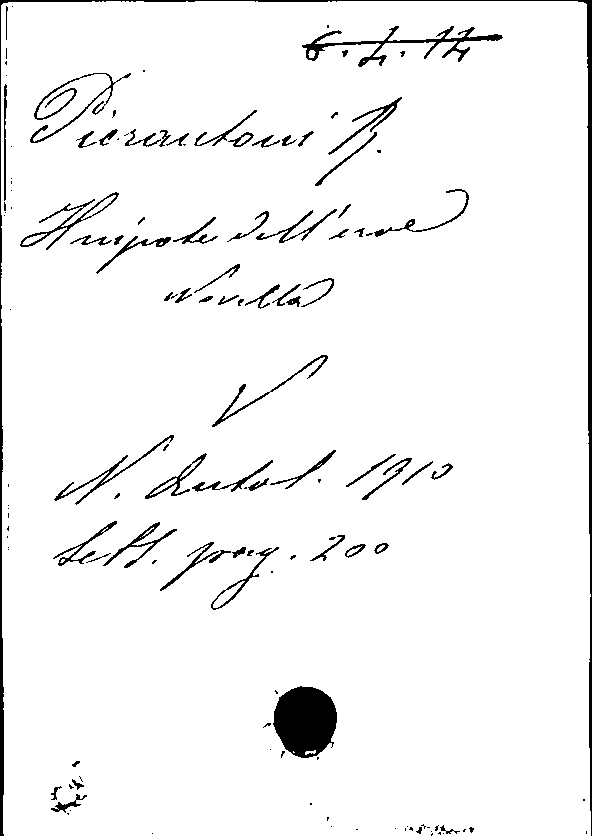 6.4.14
Pierantoni R.
Il nipote dell'eroe
Novella
V
N. Antol. 1910
Sett. pag. 200